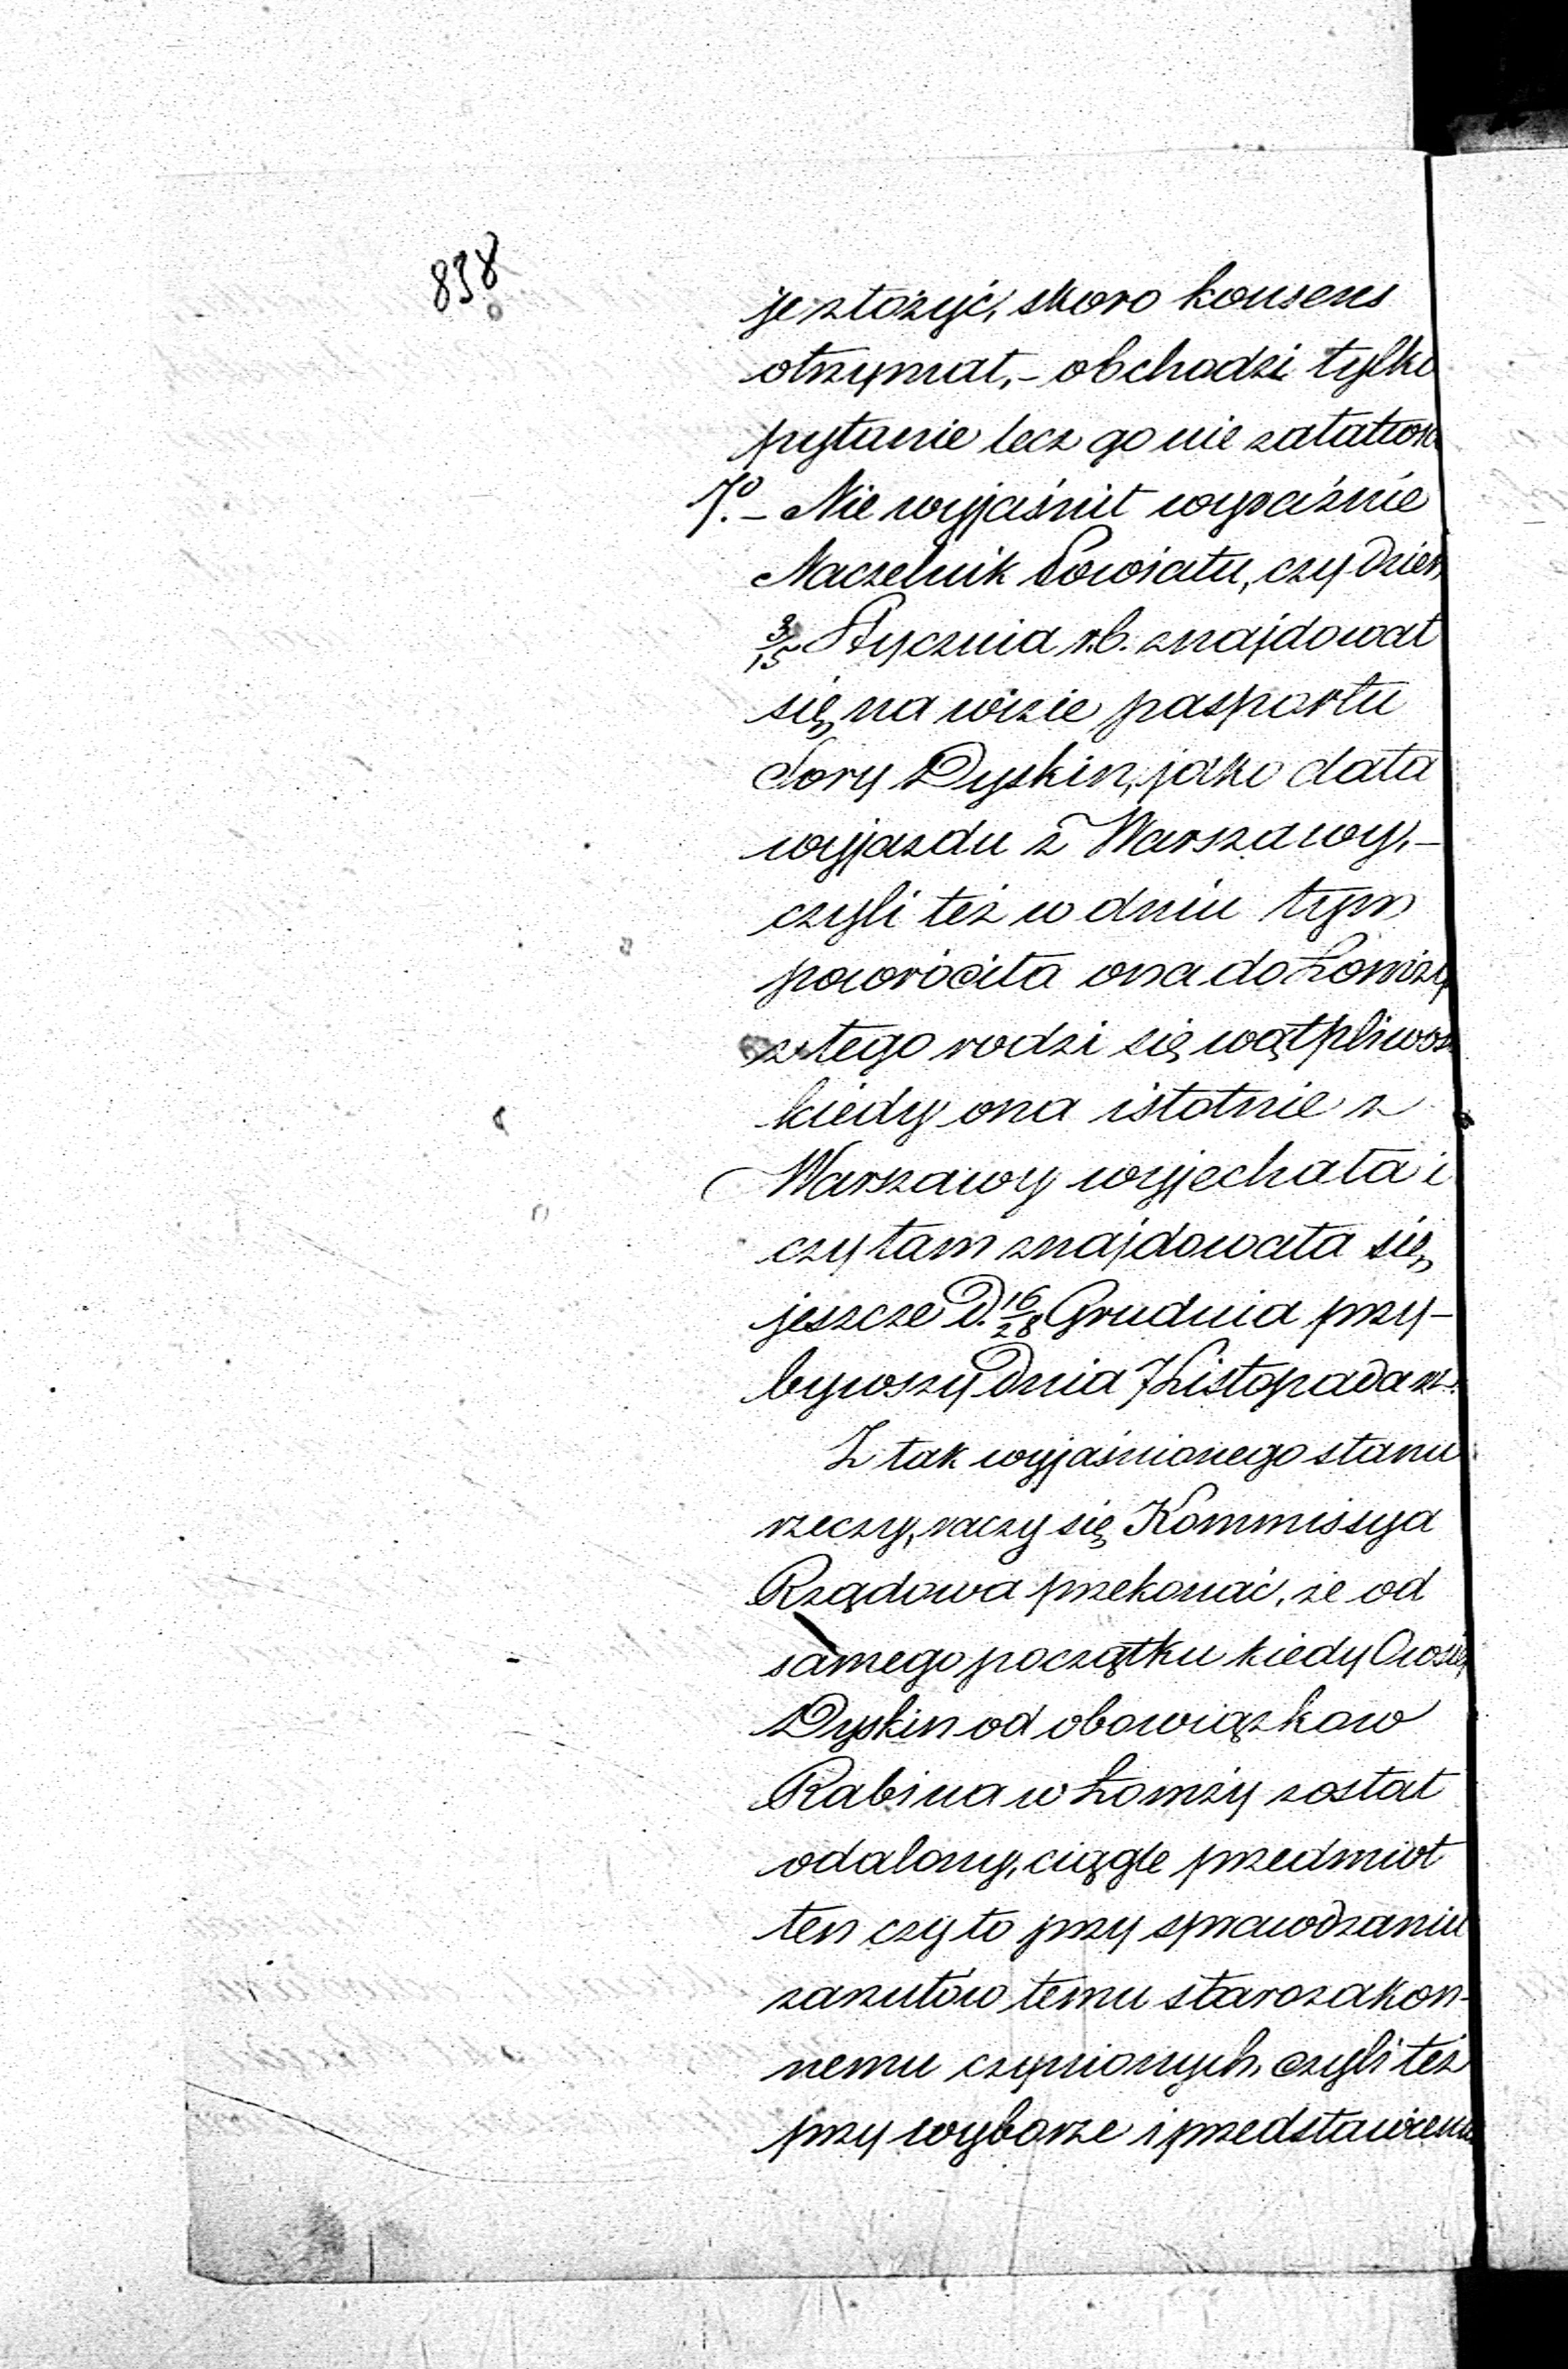 838
je złożyć, skoro konsens
otrzymał, - obchodzi tylko
pytanie lecz go nie załatwia
7º. - Nie wyjaśnił wyraźnie
Naczelnik Powiatu, czy dzień
3/15 Stycznia r.b. znajdował
się na wizie pasportu
Sory Dyskin, jako data
wyjazdu z Warszawy, -
czyli też w dniu tym
powróciła ona do Łomży
z tego rodzi się wątpliwość
kiedy ona istotnie z
Warszawy wyjechała i
czy tam znajdowała się
jeszcze D. 16/28 Grudnia przy-
bywszy Dnia 7 Listopada
Z tak wyjaśnionego stanu
rzeczy, raczy się Kommissya
Rządowa przekonać, że od
samego początku kiedy Owsiej
Dyskin od obowiązkow
Rabina w Łomży został
odalony, ciągle przedmiot
ten czy to przy sprawdzaniu
zarzutów temu starozakon-
nemu czynionych, czyli też
przy wyborze i przedstawieniu